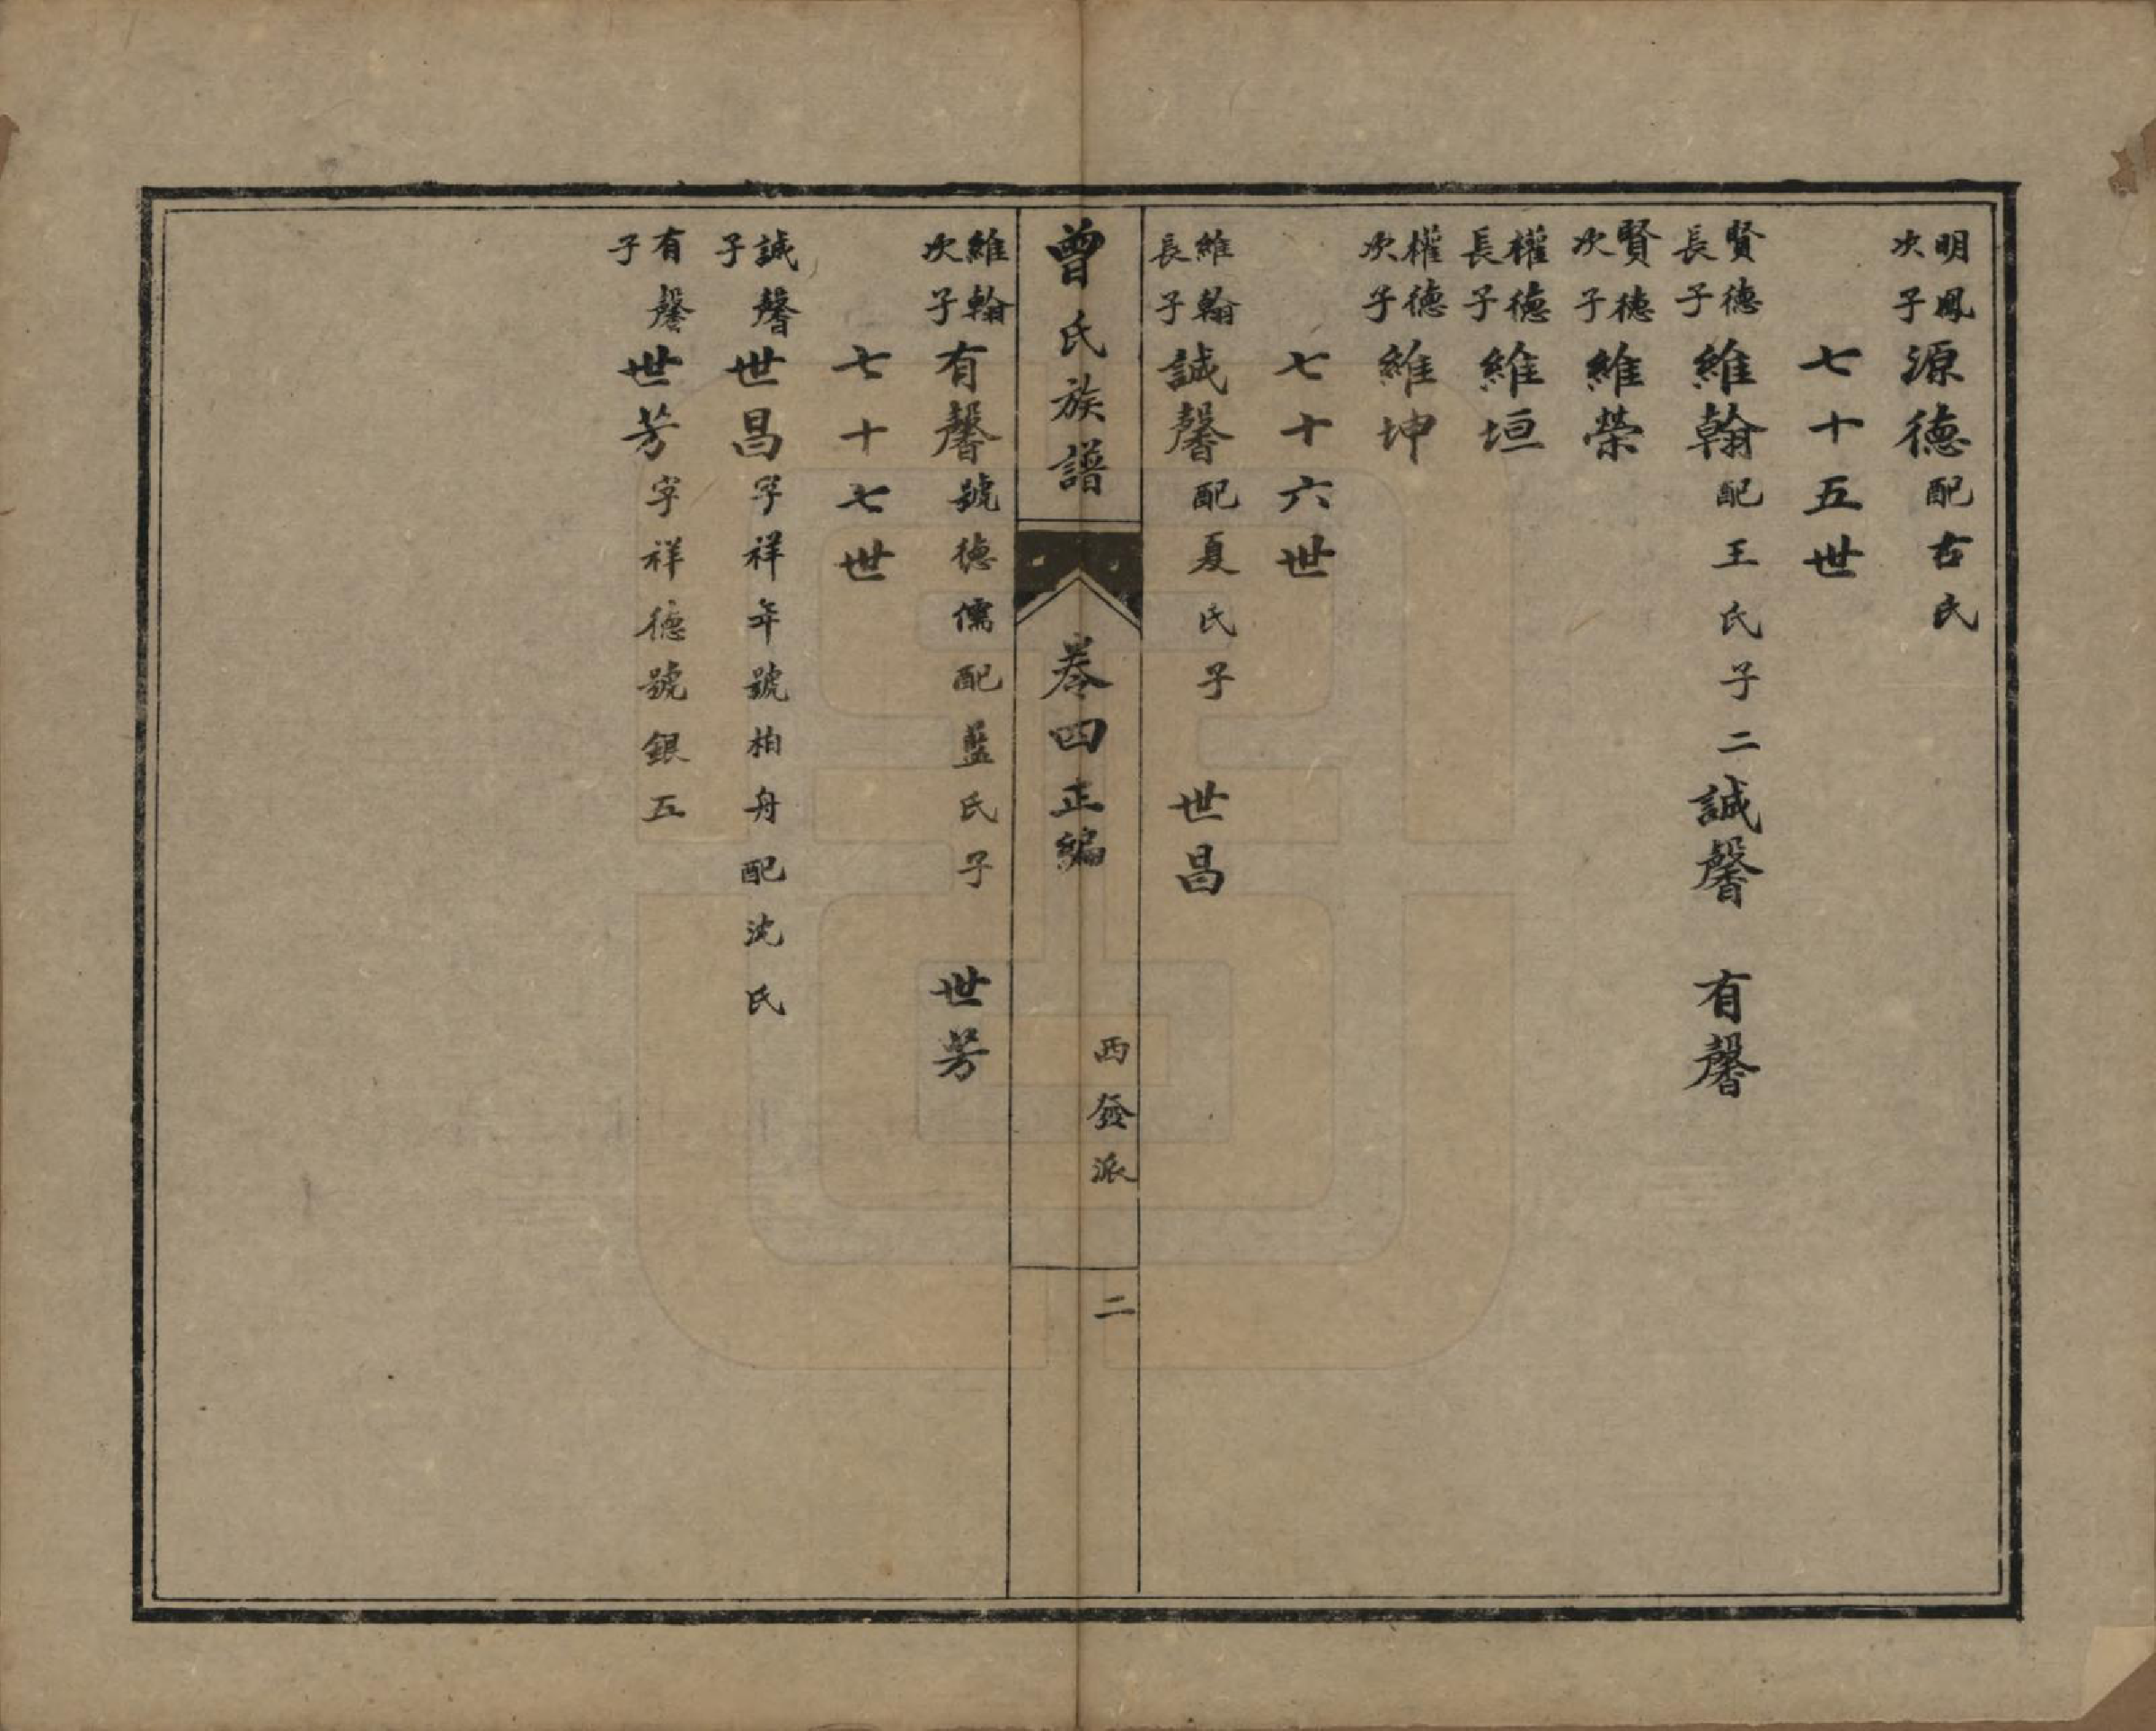 明鳳次子源德配古氏
七十五世
賢德長子維翰配王氏子二誠馨　有馨
賢德次子維榮
權德長子維垣
權德次子維坤
七十六世
維翰長子誠馨配夏氏子　世昌
曾氏族譜
卷四正編
西發派
二
維翰次子有馨號德儒配藍氏子　世芳
七十七世
誠馨子世昌字祥年號柏舟配沈氏
有馨子世芳字祥德號銀五